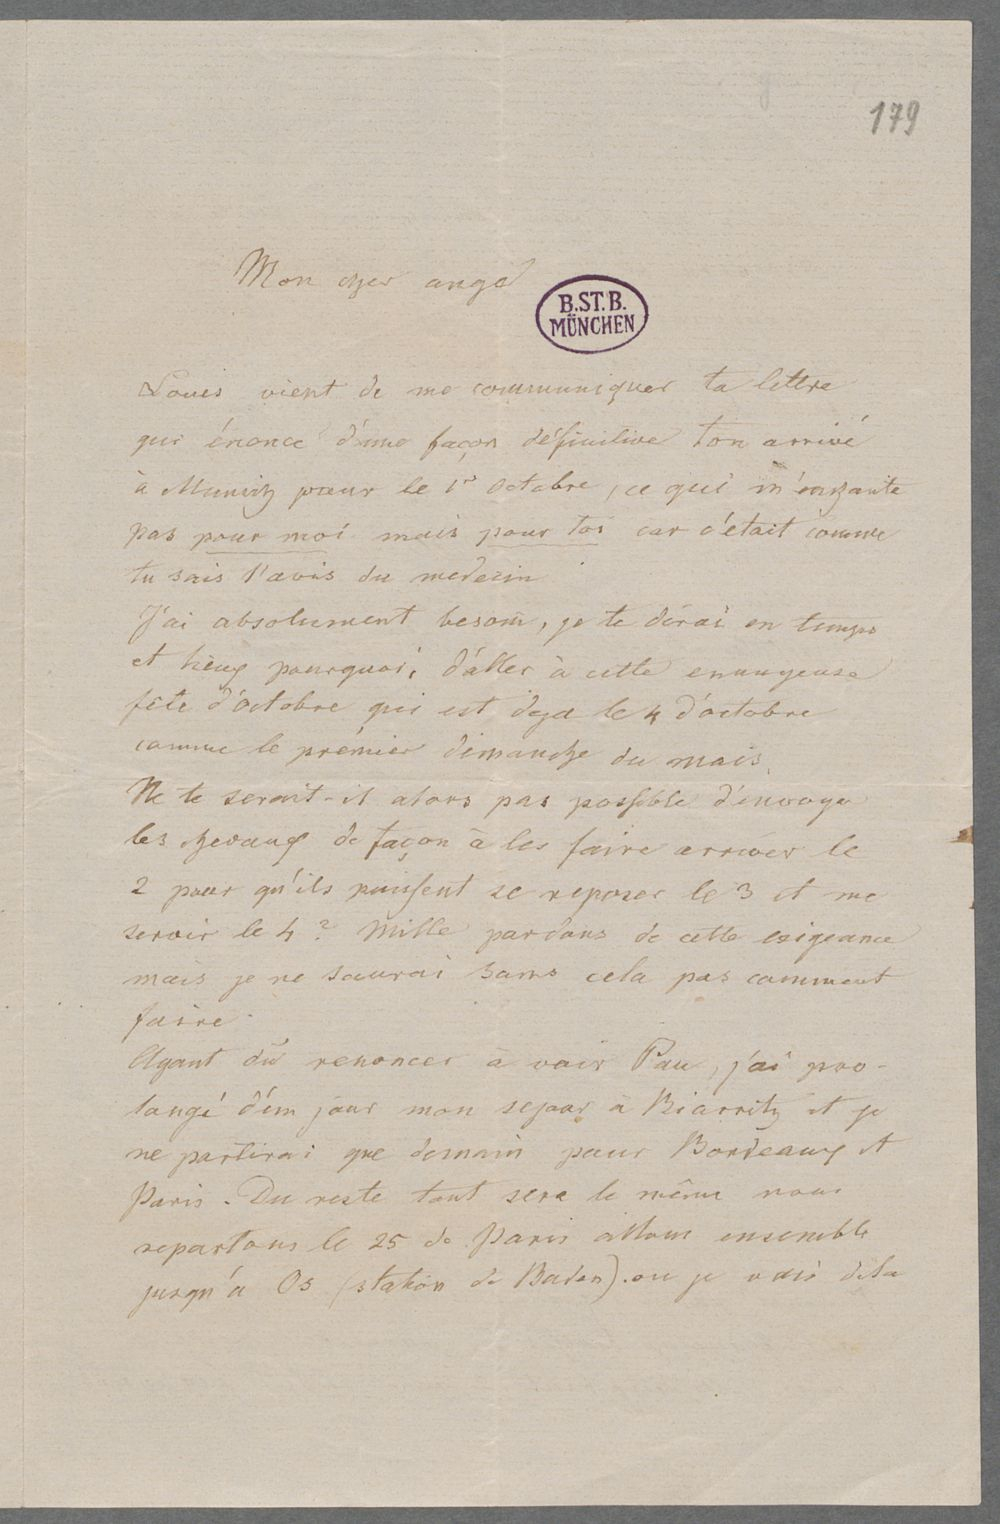 179
Mon cher ange
B.ST.B.
MÜNCHEN
Louis vient de me communiquer ta lettre
qui énonce d'une façon définitive ton arrivé
à Munich pour le 1r Octobre, ce qui m'enchante
pas pour moi mais pour toi car c'était comme
tu sais l'avis du medezin
J'ai absolument besoin, je te dirai en temps
et lieux pourquoi, d'aller à cette ennuyeuse
fête d'octobre qui est deja le 4 d'octobre
comme le prémier dimanche du mois.
Ne te serait-il alors pas possible d'envoye
les chevaux de façon à les faire arriver le
2 pour qu'ils puissent se reposer le 3 et me
servir le 4? Mille pardons de cette exigeance
mais je ne saurai sans cela pas comment
faire.
Ayant dû renoncer à voir Pau, j'ai pro-
longé d'un jour mon sejour à Biarritz et je
ne partirai que demain pour Bordeaux et
Paris. Du reste tout sera le même nous
repartons le 25 de Paris allons ensemble
jusqu'à Os (station de Baden). ou je vais